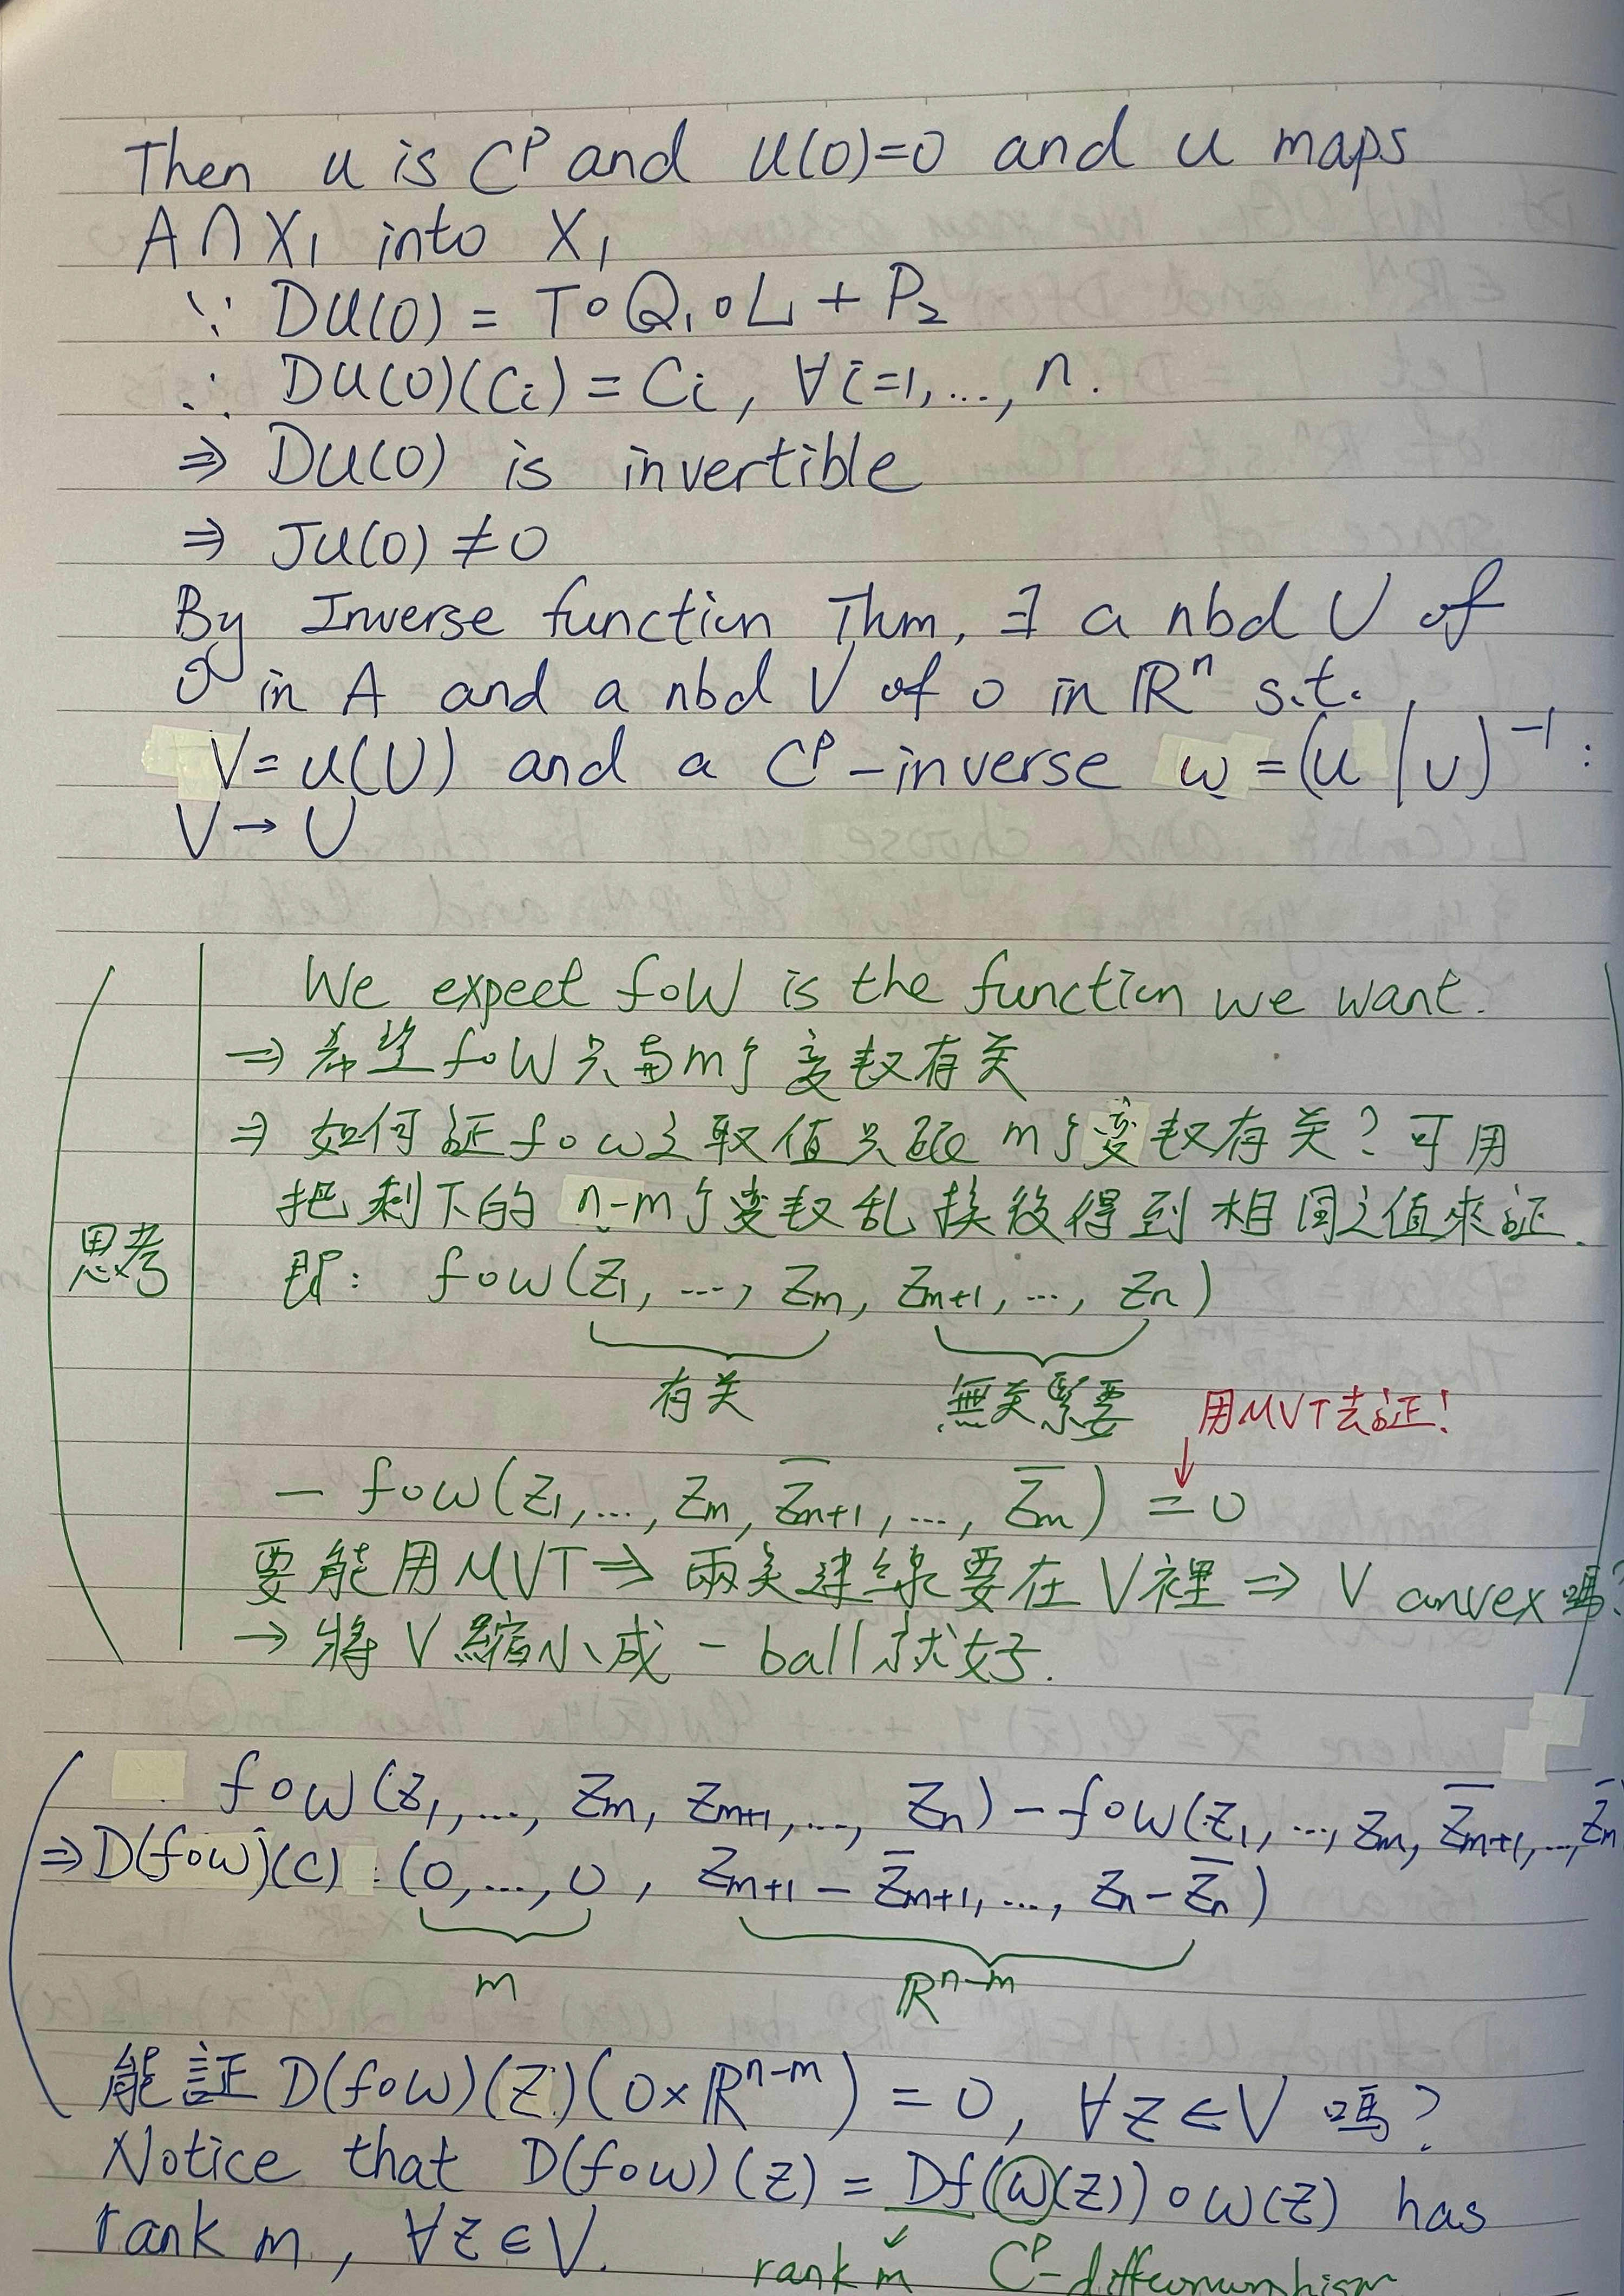 Then u is C^p and u(0)=0 and u maps
A∩X₁ into X₁
∵ Du(0) = T∘Q₁∘L + P₂
∴ Du(0)(Ci) = Ci, ∀i=1,...,n.
⇒ Du(0) is invertible
⇒ Ju(0) ≠ 0
By Inverse function Thm, ∃ a nbd U of
0 in A and a nbd V of 0 in ℝⁿ s.t.
V = u(U) and a C^p-inverse w = (u|U)⁻¹ :
V → U
We expect f∘w is the function we want.
⇒ 希望 f∘w 只与m个变数有关
⇒ 如何証 f∘w之取值只跟 m个变数有关? 可用
把剩下的 n-m个变数乱换後得到相同之值來証.
思考
即: f∘w(z₁, ..., zm, zm+1, ..., zn)
有关 無关緊要 用MVT去証!
− f∘w(z₁, ..., zm, z̄m+1, ..., z̄m) = 0
要能用MVT ⇒ 兩点連線要在V裡 ⇒ V convex 嗎?
→ 將V縮小成一ball就好.
f∘w(z₁, ..., zm, zm+1, ..., zn) − f∘w(z₁, ..., zm, z̄m+1, ..., z̄n
⇒ D(f∘w)(c) (0, ..., 0, zm+1 − z̄m+1, ..., zn − z̄n)
m ℝⁿ⁻ᵐ
能証 D(f∘w)(z)(0×ℝⁿ⁻ᵐ) = 0, ∀z∈V 嗎?
Notice that D(f∘w)(z) = Df(w(z))∘w(z) has
rank m, ∀z∈V.
rank m C^p-diffeomorphism